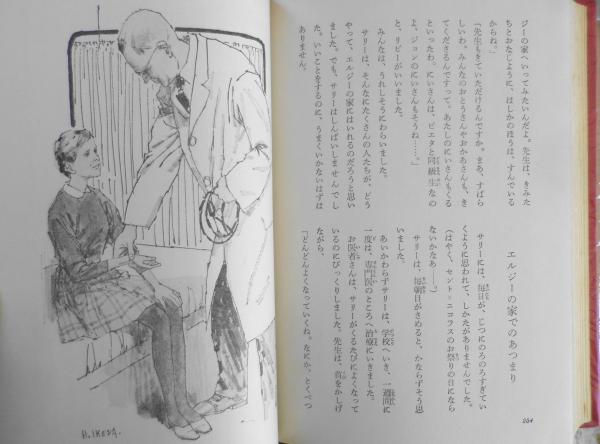 ジーの家へいってみたいんだよ。先生は、きみた
ちとおなじように、はしかのほうは、すんでいる
からね。」
「先生もきていただけるんですか。まあ、すばら
しいわ。みんなのおとうさんやおかあさんも、き
てくださるんですって。あたしのにいさんもくる
といったわ。にいさんは、ピエタと同級生なの
よ、ジョンのにいさんもそうね……。」
と、リビーがいいました。
みんなは、うれしそうにわらいました。
サリーは、そんなにたくさんの人たちが、どう
やって、エルジーの家にはいれるのだろうと思い
ました。でも、サリーはしんぱいしませんでし
た。いいことをするのに、うまくいかないはずは
ありません。
エルジーの家でのあつまり
サリーには、毎日が、じつにのろのろすぎてい
くように思われて、しかたがありませんでした。
（はやく、セント＝ニコラスのお祭りの日になら
ないかなあ――。）
サリーは、毎朝目がさめると、かならずそう思
いました。
あいかわらずサリーは、学校へいき、一週間に
一度は、専門医のところへ治療にいきました。
お医者さんは、サリーがくるたびによくなって
いるのにびっくりしました。先生は、首をかしげ
ながら、
「どんどんよくなっていくね。なにか、とくべつ
264
H.IKEDA.